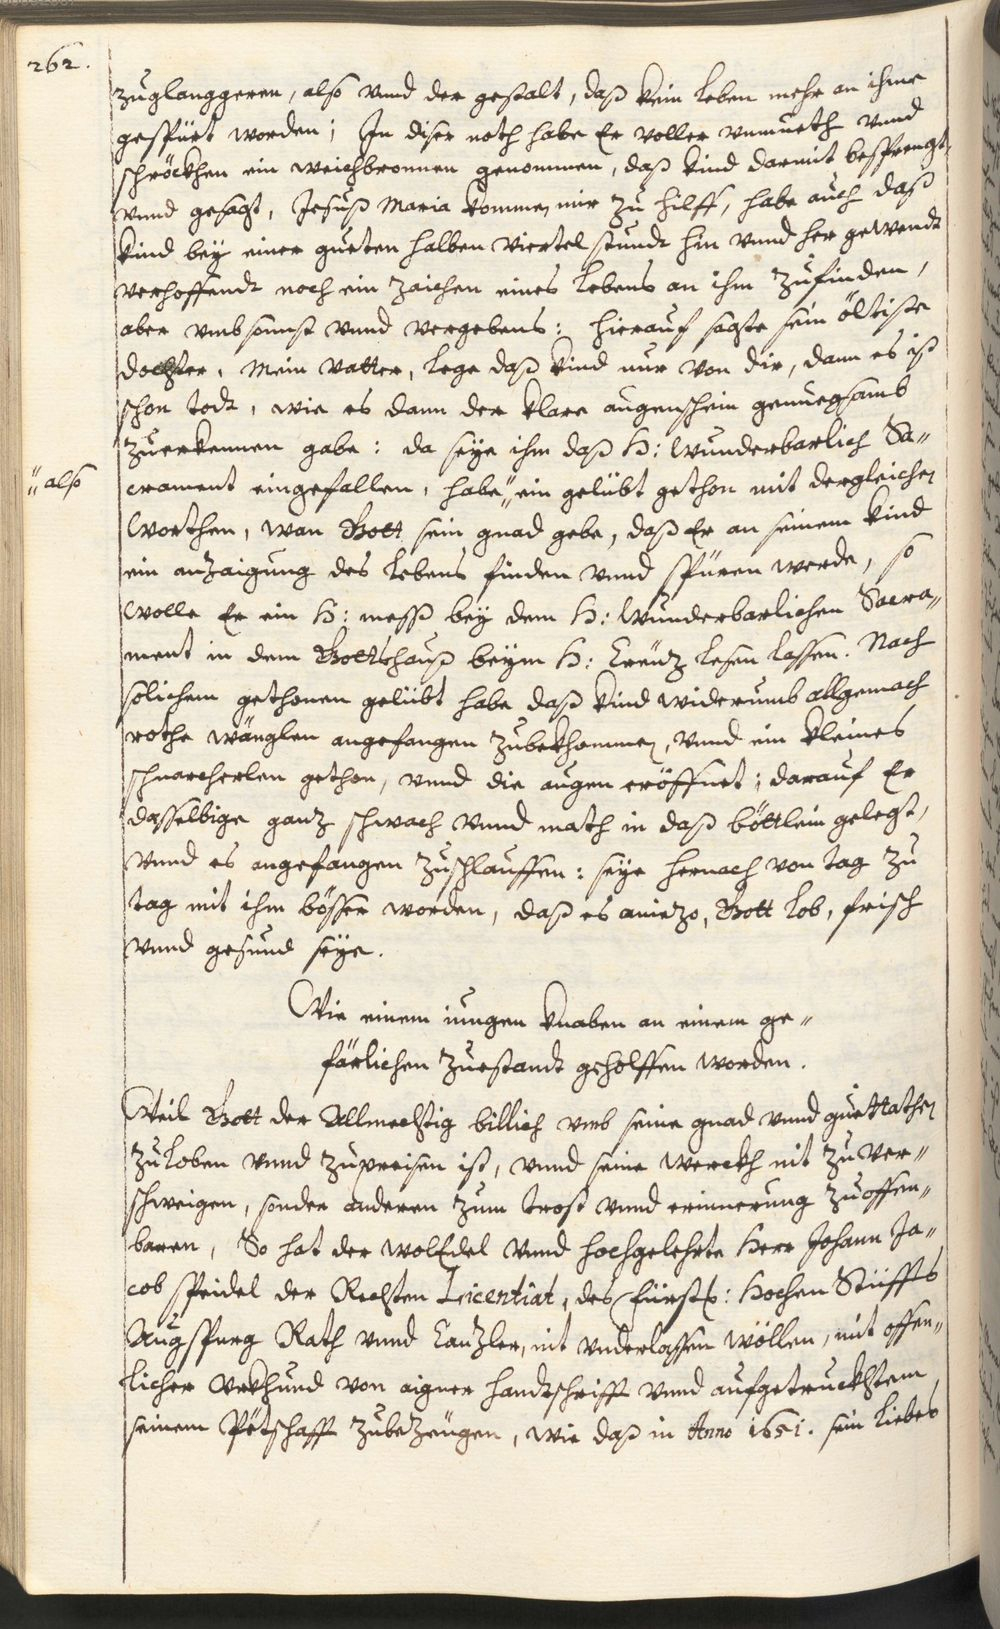 262.
zuglanggeren, also vnnd der gestalt, daß kein leben mehr an ihme
gespürt worden; In diser noth habe Er voller vnmueth vnnd
schröckhen ein weichbronnen genommen, daß kind darmit besprengt,
vnnd gesagt, Jesuß Maria kommen mir zu hilff, habe auch daß
kind bey einer gueten halben viertel stundt hin vnnd her gewendt
verhoffendt noch ein zaichen eines lebens an ihm zufinden,
aber vmbsonnst vnnd vergebens: hierauf sagte sein öltiste
dochter, Mein vatter, lege daß kind nur von dir, dann es ist
schon todt, wie es dann der klare augenschein genuegsamb
zuerkennen gabe: da seye ihm daß H: wunderbarlich Sa„
„also
crament eingefallen, habe „ ein gelübt gethon mit dergleichen
Worthen, wan Gott sein gnad gebe, daß Er an seinem kind
ein anzaigung des lebens finden vnnd spüren werde, so
wolle Er ein H: mess bey dem H: Wunderbarlichen Sacra„
ment in dem Gottshauß beym H: Creütz lesen lassen. Nach
solichem gethonen gelübt habe daß kind widerumb allgemach
rothe wänglen angefangen zubekhommen, vnnd ein kleines
schnarcherlen gethon, vnnd die augen eröffnet; darauf Er
dasselbige ganz schwach vnnd math in daß böttlein gelegt,
vnnd es angefangen zuschlauffen: seye hernach von tag zu
tag mit ihm bösser worden, daß es aniezo, Gott lob, frisch
vnnd gesund seye.
Wie einem iungen knaben an einem ge„
färlichen zuestandt geholffen worden.
Weil Gott der Allmechtig billich vmb seine gnad vnnd guetthathen
zuloben vnnd zupreisen ist, vnnd seine werckh nit zu ver„
schweigen, sonder anderen zum trost vnnd erinnerung zu offen„
baren, So hat der wolEdel vnnd hochgelehrte Herr Johann Ja„
cob Speidel der Rechten Licentiat, des Fürstl: Hochen Stüffts
Augspurg Rath vnnd Canzler, nit vnderlassen wöllen, mit offen„
licher vrkhund von aigner handtschrifft vnnd aufgetruckhtem
seinem Pëtschafft zubezeügen, wie daß in Anno 1651. sein liebes